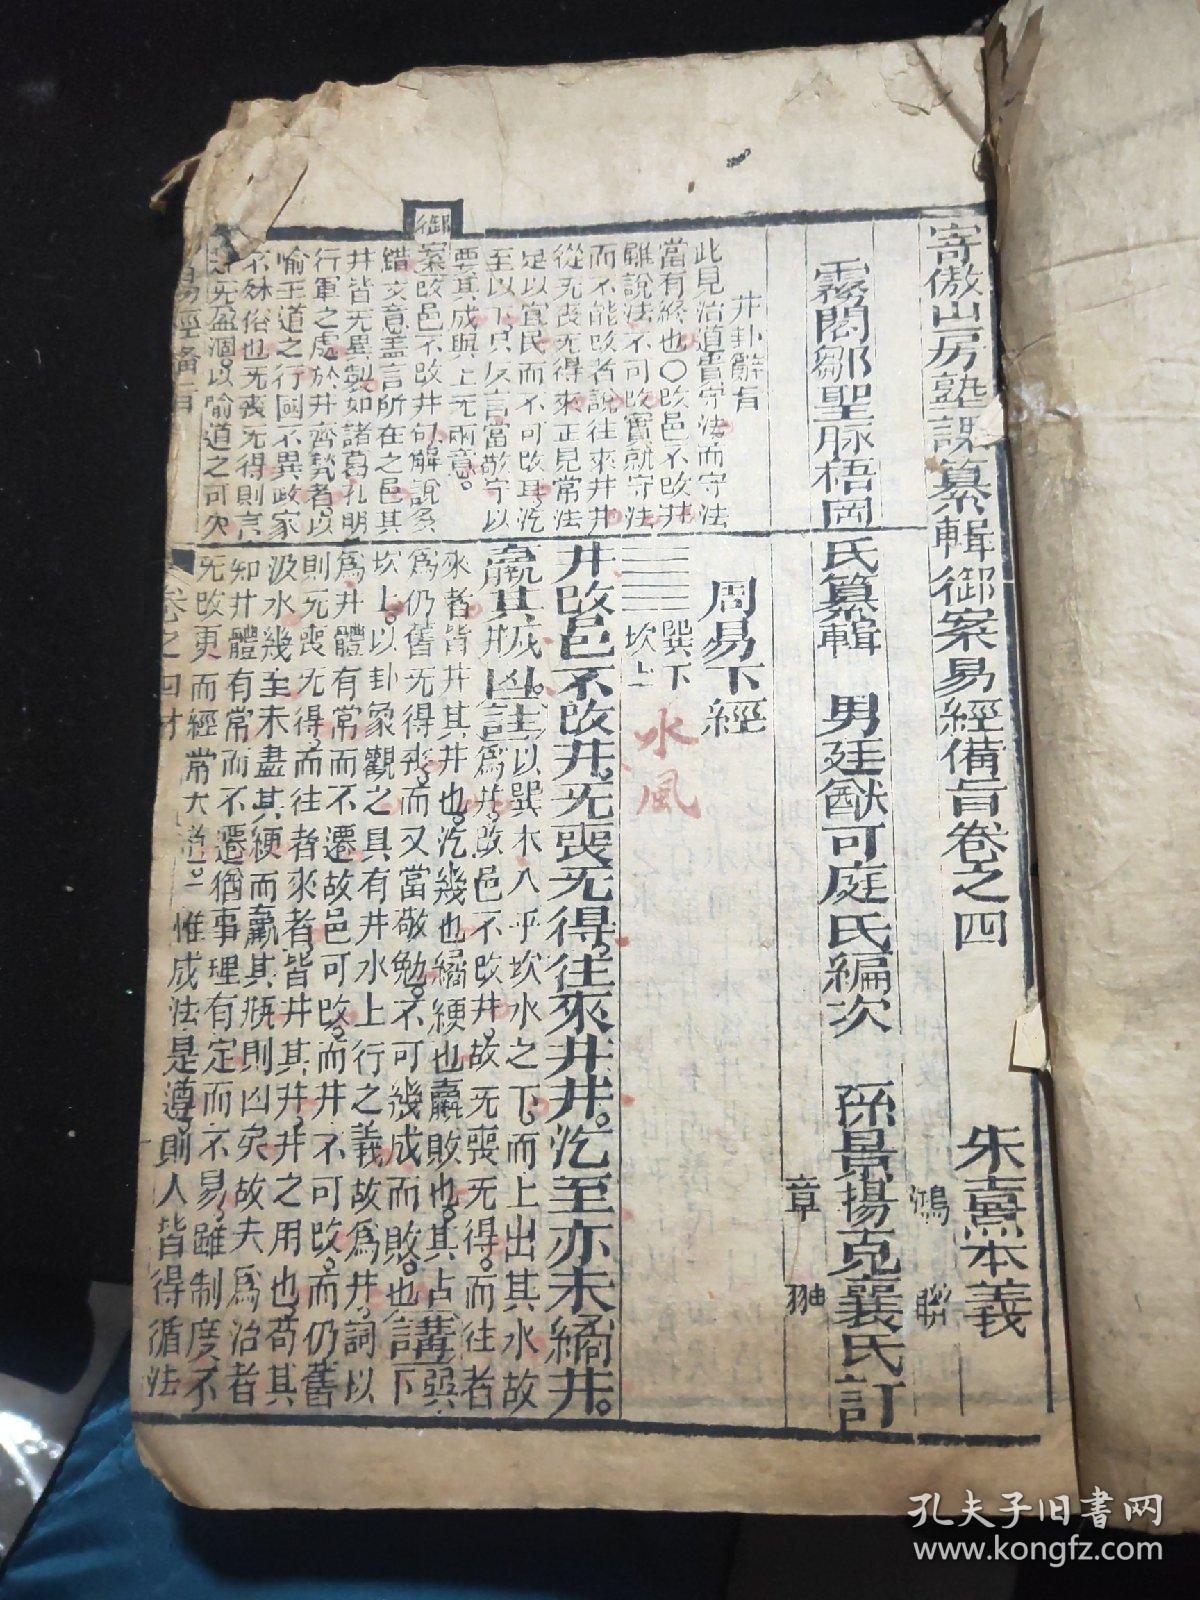 寄傲山房塾課纂輯御案易經備旨卷之四
朱熹本義
霧閣鄒聖脉梧岡氏纂輯 男廷猷可庭氏編次 孫景揚克襄氏訂
鴻 聯
章 翀
井卦辭有
此見治道貴守法而守法
當有終也〇改邑不改井
雖說法不可改實就守法
而不能改者說往來井井
從无喪无得來正見常法
足以宜民而不可改耳汔
至以下只反言當敬守以
要其成與上无兩意
御案改邑不改井句解說多
錯文意蓋言所在之邑其
井皆无異製如諸葛孔明
行軍之處於井齊甃者以
喻王道之行國不異政家
不殊俗也无喪无得則言
以喻道之可久
周易下經
巽下
坎上
水風
井改邑不改井。无喪无得。往來井井。汔至亦未繘井。
羸其瓶凶。註以巽木入乎坎水之下。而上出其水故
爲井。改邑不改井。故无喪无得。而往者
來者皆井其井也。汔幾也繘綆也羸敗也。其占
爲仍舊无得喪。而又當敬勉。不可幾成而敗也。講巽下
坎上。以卦象觀之具有井水上行之義故爲井。詞以
爲井體有常而不遷故邑可改。而井不可改。而仍舊
則无喪无得。而往者來者。皆井其井。井之用也。苟其
汲水幾至未盡其綆而羸其瓶則凶矣故夫爲治者
知井體有常而不遷猶事理有定而不易。雖制度不
无改更而經常大道。惟成法是遵。則人皆得循法
易經備旨
卷之四
孔夫子旧书网
www.kongfz.com